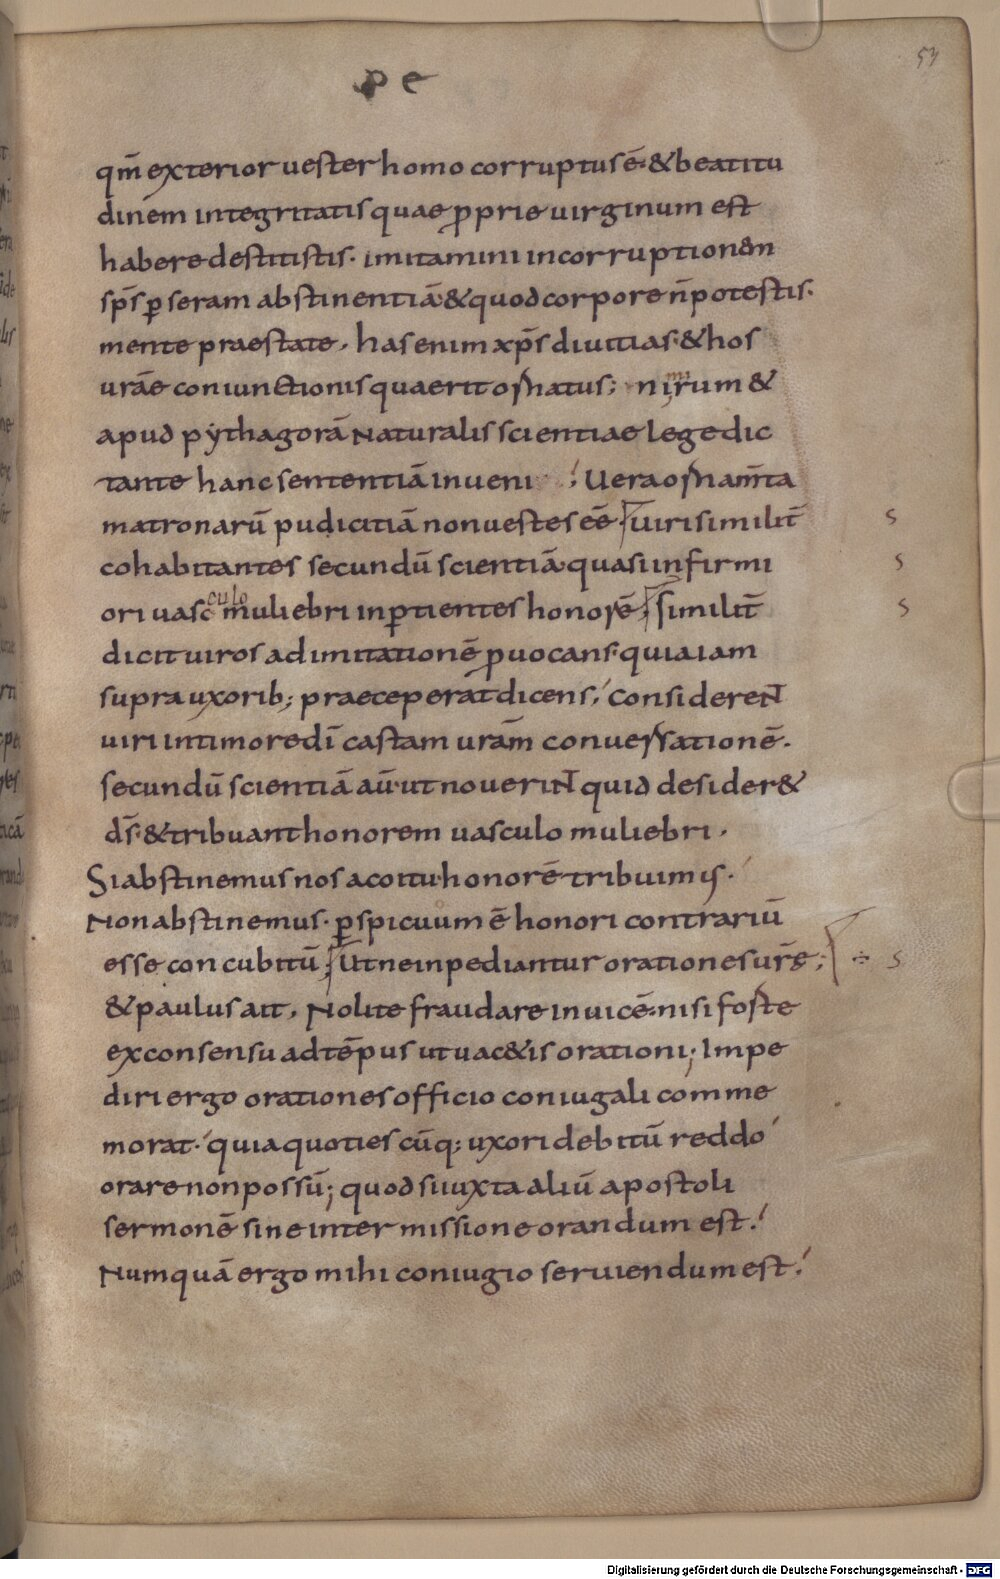 pe
57
qm̄ exterior uester homo corruptus ē· & beatitu
dinem integritatis quae ꝓprie uirginum est
habere destitistis· imitamini incorruptionem
sp̄s ꝑ seram abstinentiā· & quod corpore n̄ potestis·
mente praestate· has enim xp̄s diuitias· & hos
urāe coniunctionis quaerit ornatus; nirum &
mi
apud pythagorā naturalis scientiae lege dic
tante hanc sententiā inueni ! Uera ornam̄ta
matronarū pudicitiā non uestes eē· Uiri similit̄ s
cohabitantes secundū scientiā· quasi infirmi s
culo
ori uasc muliebri inꝑtientes honorē; Similit̄ s
dicit uiros ad imitationē ꝓuocans· quia iam
supra uxorib; praeceperat dicens; Considerent
uiri in timore dī castam urām conuersationē·
secundū scientiā aū· ut nouerint quid desider&
ds̄· & tribuant honorem uasculo muliebri·
Si abstinemus nos a coitu· honorē tribuimus·
Non abstinemus· ꝑspicuum ē honori contrariū
esse concubitū; Ut ne inpediantur orationes ur̄ę; ÷ s
& paulus ait· Nolite fraudare inuicē· nisi forte
ex consensu ad tēpus ut uac&is orationi; Impe
diri ergo orationes officio coniugali comme
morat· quia quoties cūq; uxori debitū reddo
orare non possū; quod si iuxta aliū apostoli
sermonē sine intermissione orandum est·
Numquā ergo mihi coniugio seruiendum est·
Digitalisierung gefördert durch die Deutsche Forschungsgemeinschaft - DFG